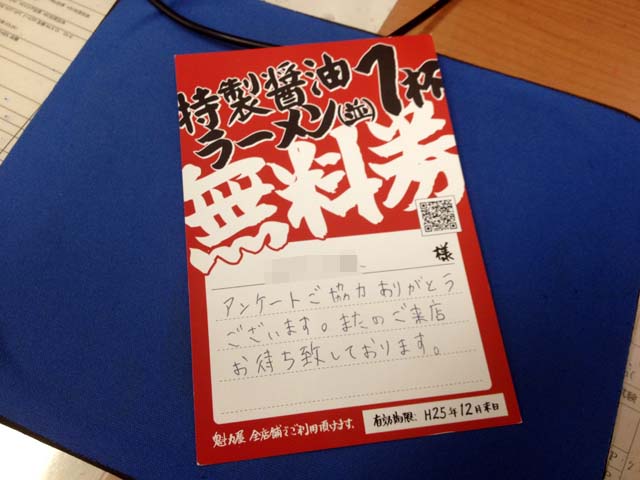 特製醤油1杯
ラーメン(並)
無料券
様
アンケートご協力ありがとう
ございます。またのご来店
お待ち致しております。
魁力屋 全店舗でご利用頂けます。
有効期限: H25年12月末日